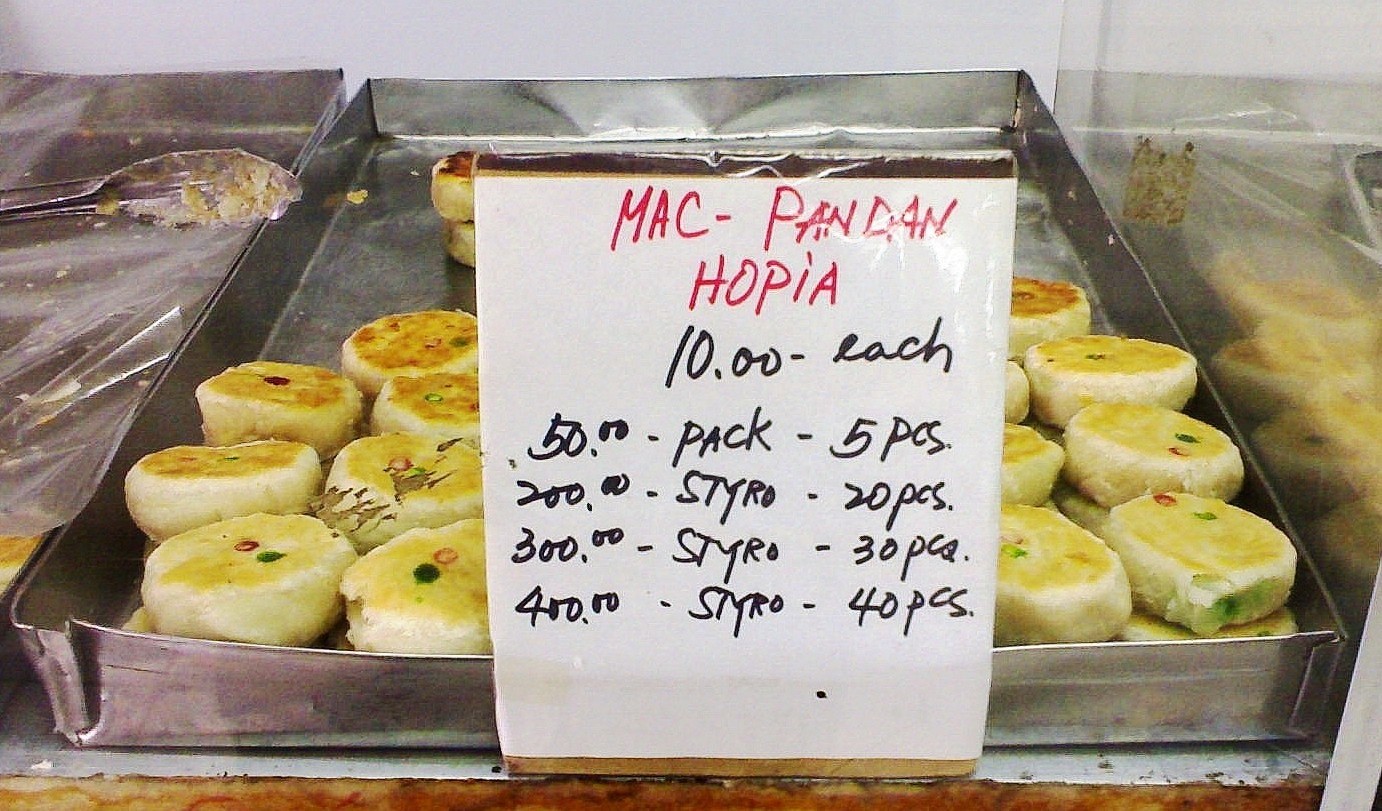 MAC- PANDAN
HOPiA
10.00- each
50.00 - PACK - 5 pcs.
200.00 - STYRO - 20 pcs.
300.00 - STYRO - 30 pcs.
400.00 - STYRO - 40 pcs.